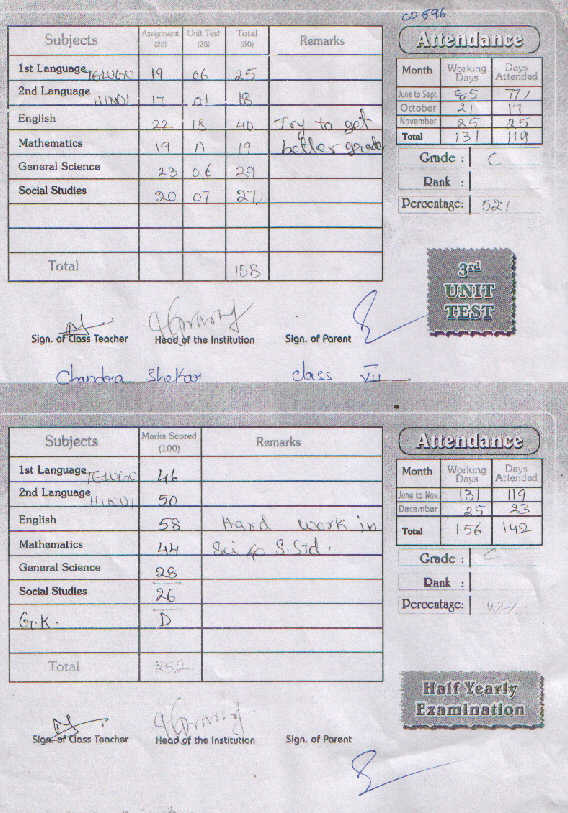 CD 596
Subjects Assignment (25) Unit Test (25) Total (50) Remarks
1st Language TELUGU 19 06 25
2nd Language HINDI 17 01 18
English 22 18 40 Try to get
Mathematics 19 19 better grade
General Science 23 06 29
Social Studies 20 07 27
Total 158
Attendance
Month Working Days Days Attended
June to Sept. 85 77
October 21 17
November 25 25
Total 131 119
Grade : C
Rank :
Percentage: 52%
3rd
UNIT
TEST
Sign. of Class Teacher Head of the Institution Sign. of Parent
Chandra Shekar class VII
Subjects Marks Scored (100) Remarks
1st Language TELUGU 46
2nd Language HINDI 50
English 58 Hard work in
Mathematics 44
General Science 28
Social Studies 26
G.K. D
Total 252
Attendance
Month Working Days Days Attended
June to Nov. 131 119
December 25 23
Total 156 142
Grade : C
Rank :
Percentage: 42%
Half Yearly
Examination
Sign. of Class Teacher Head of the Institution Sign. of Parent